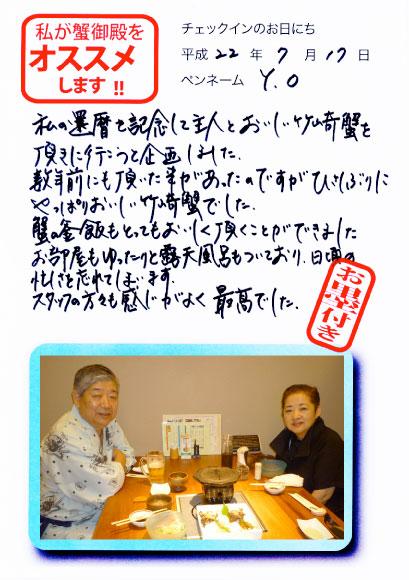 私が蟹御殿を
オススメ
します!!
チェックインのお日にち
平成 22 年 7 月 17 日
ペンネーム Y.O
私の還暦を記念して主人とおいしい竹崎蟹を
頂きに行こうと企画しました。
数年前にも頂いた事があったのですがひさしぶりに
やっぱりおいしい竹崎蟹でした。
蟹の釜飯もとってもおいしく頂くことができました
お部屋もゆったりと露天風呂もついており、日頃の
忙しさを忘れてしまいます。
スタッフの方々も感じがよく最高でした。
お墨付き